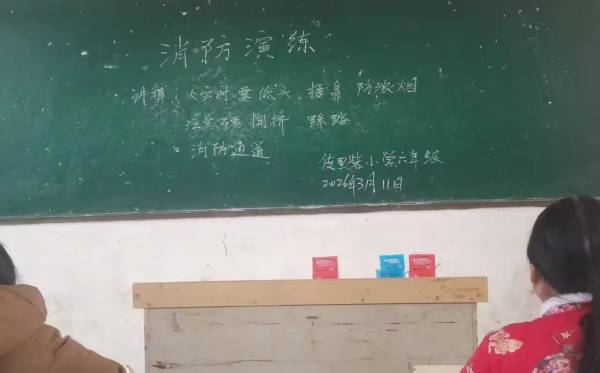 消防演练
讲稿：火灾时要低头，捂鼻 防浓烟
拥挤 踩踏
消防通道
小学六年级
2026年3月11日